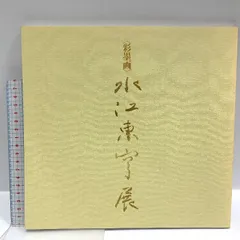 〈彩墨画〉
水江東穹展